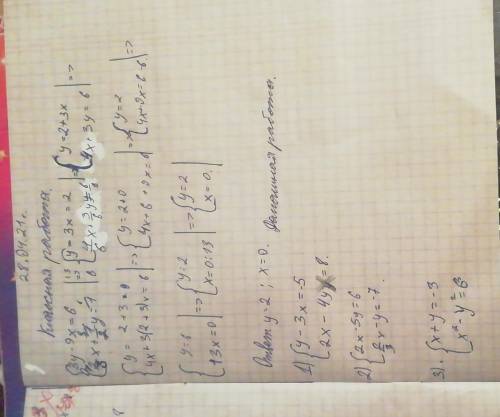 28.04.21г.
Класная работа.
{3y - 9x = 6 |:3 => {y - 3x = 2 => {y = 2 + 3x =>
{4x + 3y = 6
{y = 2 + 3·0
{4x + 3(2 + 3)x = 6 => {y = 2 + 0
{4x + 6 + 9x = 6 => {y = 2
{4x + 9x = 6 - 6 =>
{13x = 0 => {y = 2
{x = 0:13 => {y = 2
{x = 0.
Ответ y = 2 ; x = 0.
Домашная работа.
1) {y - 3x = -5
{2x - 4y = 8.
2) {2x - 5y = 6
{x/3 - y = -7.
3). {x + y = -3
{x² - y² = 6